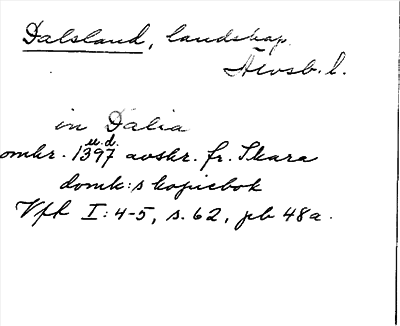 Dalsland, landskap.
Älvsb. l.
in Dalia
u.d.
omkr. 1397 avskr. fr. Skara
domk:s kopiebok
Vfh I: 4-5, s. 62, pb 48a.